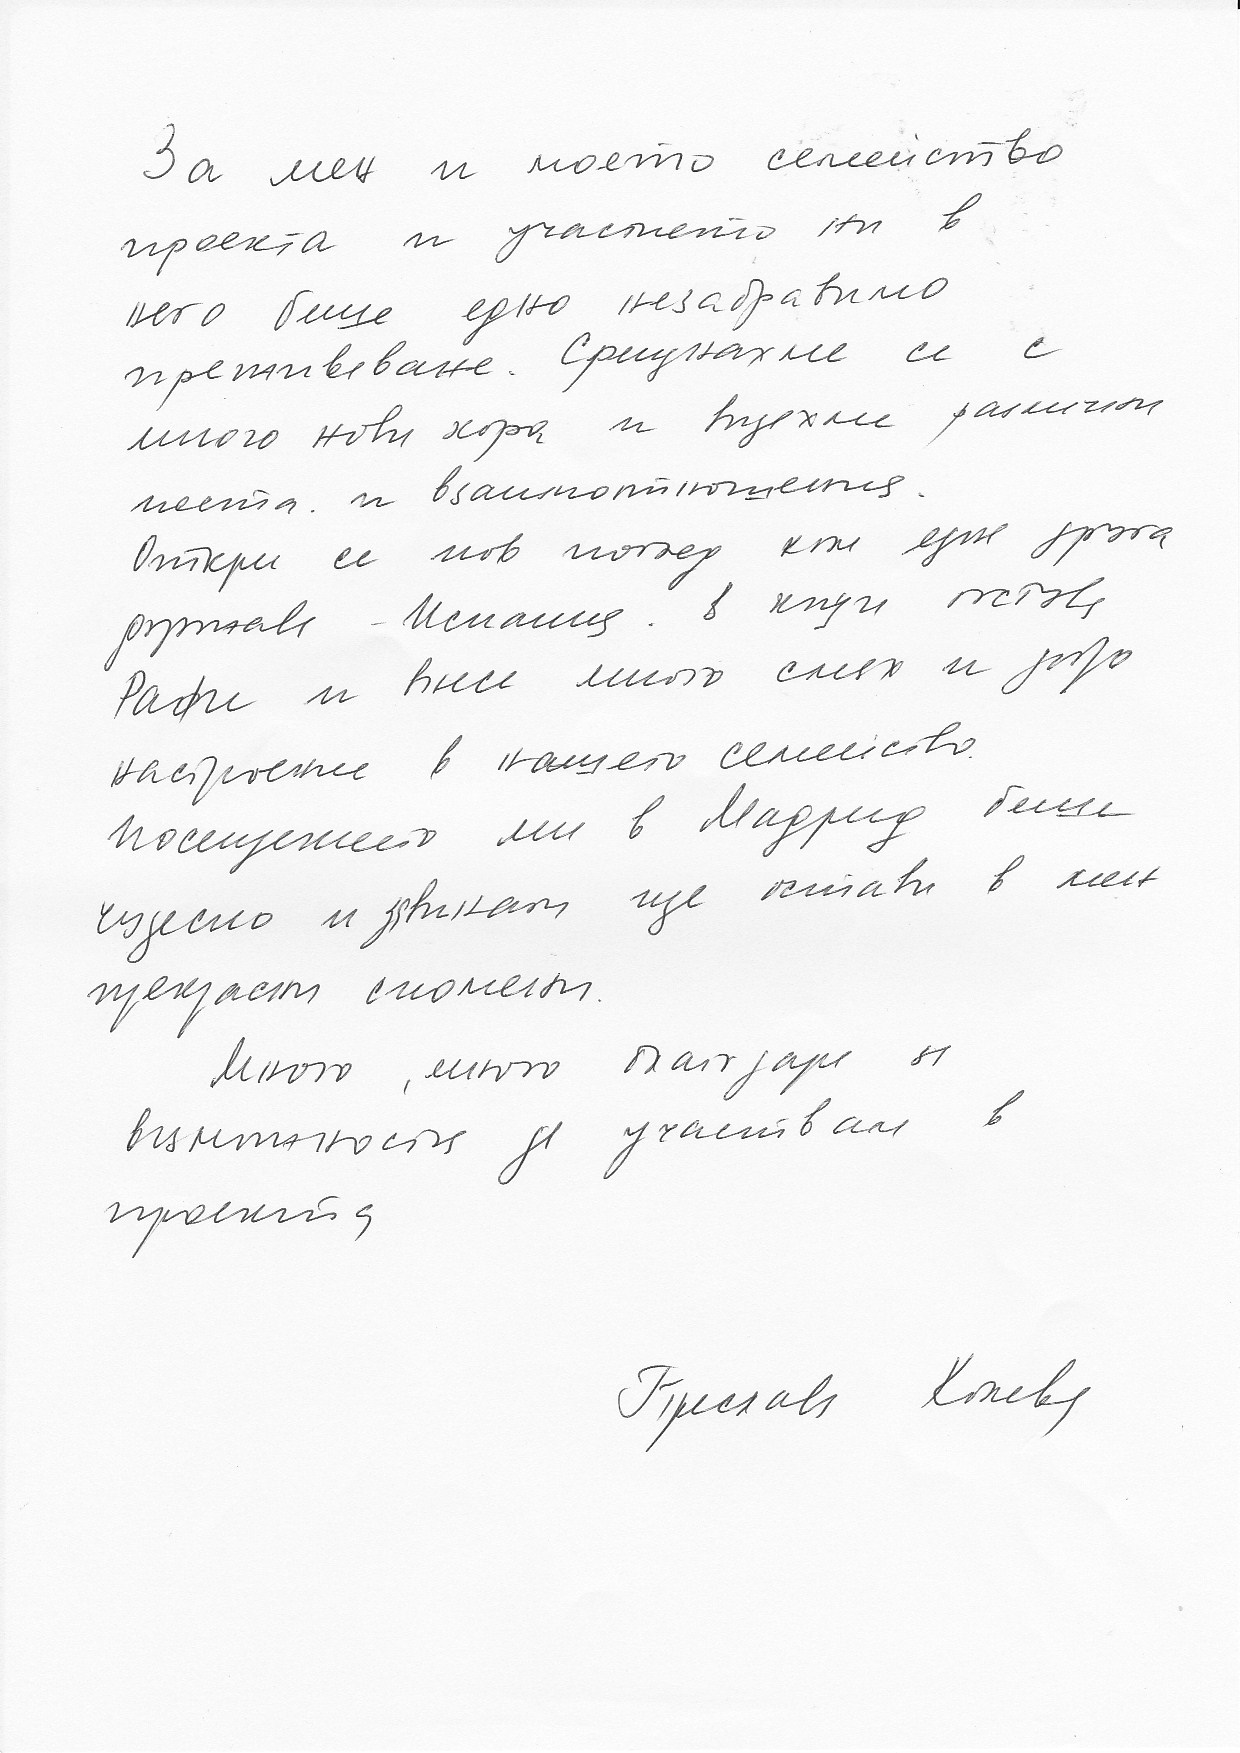 За мен и моето семейство
проекта и участието ни в
него беше едно незабравимо
преживяване. Срещнахме се с
много нови хора и видяхме различни
места. и взаимоотношения.
Откри се нов поглед към една друга
държава - Испания. В къщи остава
Рафи и внесе много смях и добро
настроение в нашето семейство.
Посещението ми в Мадрид беше
чудесно и завинаги ще остави в мен
прекрасни спомени.
Много, много благодаря за
възможността да участвам в
проекта
Преслава Колева